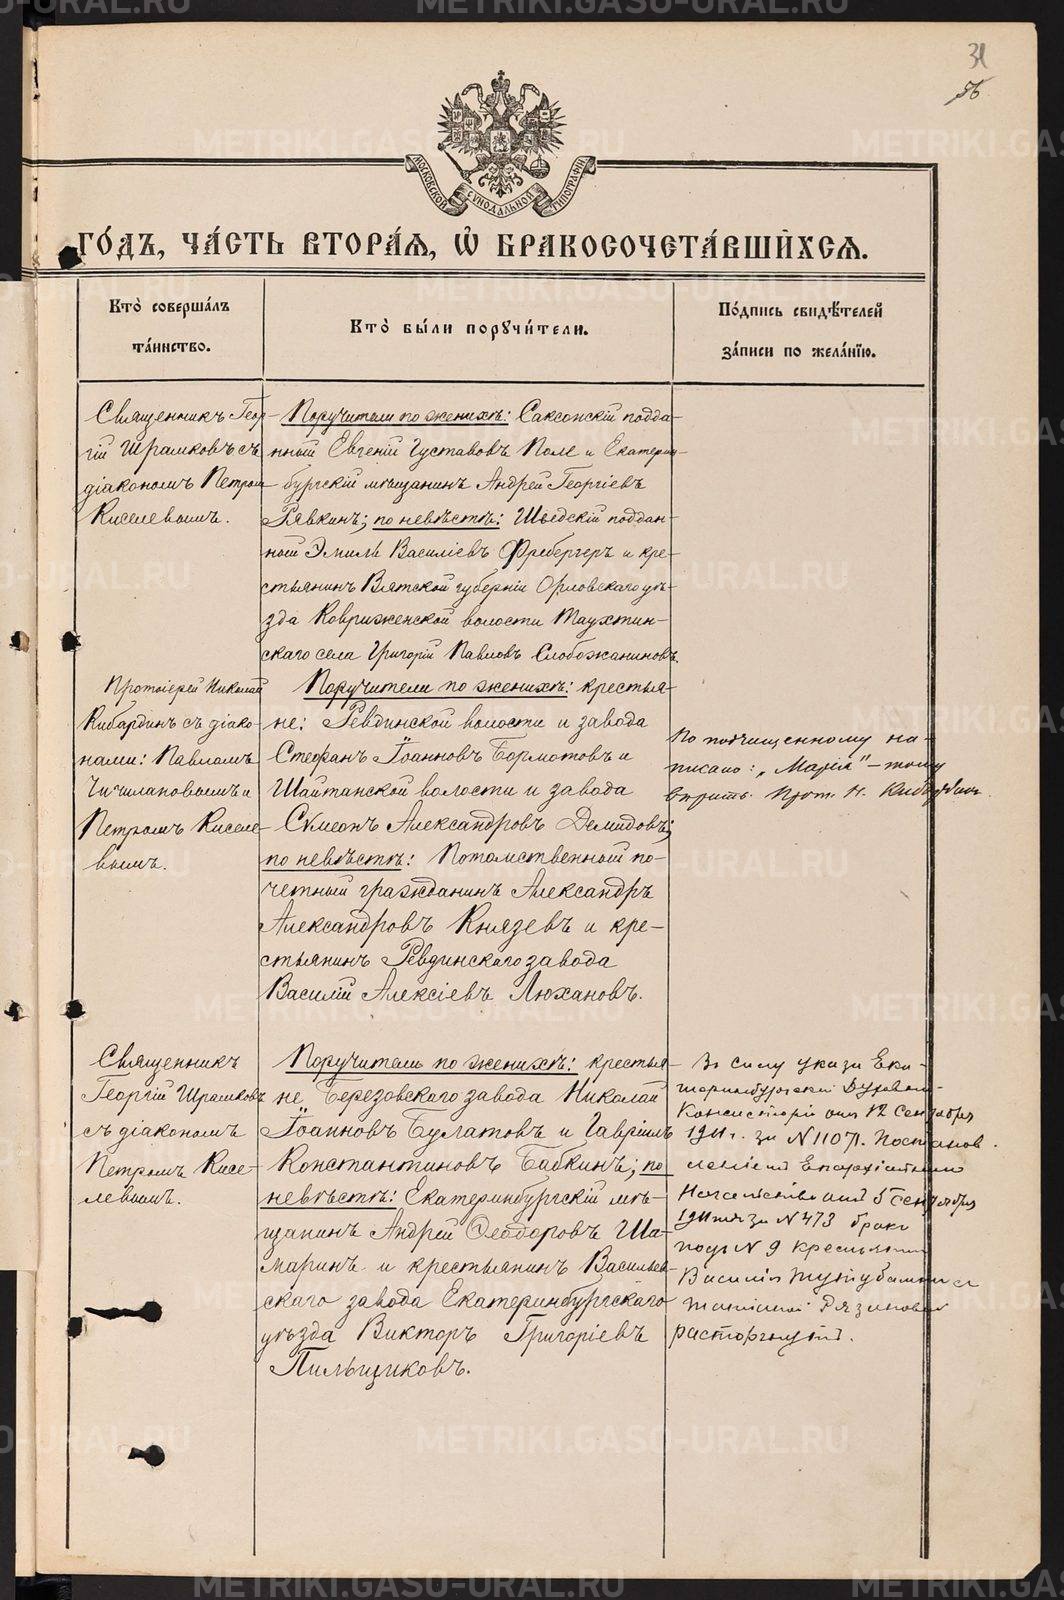 31
56
МОСКОВСКОЙ СѴНОДАЛЬНОЙ ТИПОГРАФІИ
ГО́ДЪ, ЧА́СТЬ ВТОРА́Я, Ѽ БРАКОСОЧЕТА́ВШИХСЯ.
Кто̀ соверша́лъ
та́инство.
Кто̀ бы́ли поручи́тели.
По́дпись свидѣ́телей
за́писи по жела́нїю.
Священникъ Геор-
гій Шрамковъ съ
діакономъ Петром
Киселевымъ.
Поручители по женихѣ: Саксонскій подда-
нный Евгеній Густавовъ Поле и Екатерин-
бургскій мѣщанинъ Андрей Георгіевъ
Рявкинъ; по невѣстѣ: Шведскій поддан-
ный Эмиль Василіевъ Фребергеръ и кре-
стьянинъ Вятской губерніи Орловскаго уѣ-
зда Ковриженской волости Таухтин-
скаго села Григорій Павловъ Слобожаниновъ.
Протоіерей Николай
Кибардинъ съ діако-
нами: Павломъ
Чичилановымъ и
Петромъ Киселе-
вымъ.
Поручители по женихѣ: крестья-
не: Ревдинской волости и завода
Стефанъ Іоанновъ Бормотовъ и
Шайтанской волости и завода
Сѵмеонъ Александровъ Демидовъ;
по невѣстѣ: Потомственный по-
четный гражданинъ Александръ
Александровъ Князевъ и кре-
стьянинъ Ревдинскаго завода
Василій Алексіевъ Люхановъ.
По подчищенному на-
писано: „Марія" – тому
вѣрить. Прот. Н. Кибардинъ.
Священникъ
Георгій Шрамковъ
съ діакономъ
Петромъ Кисе-
левымъ.
Поручители по женихѣ: крестья-
не Березовскаго завода Николай
Іоанновъ Булатовъ и Гавріилъ
Константиновъ Бабкинъ; по
невѣстѣ: Екатеринбургскій мѣ-
щанинъ Андрей Ѳеодоровъ Ша-
маринъ и крестьянинъ Васильев-
скаго завода Екатеринбургскаго
уѣзда Викторъ Григоріевъ
Пильщиковъ.
Въ силу указа Ека-
теринбургской Духовной
Консисторіи отъ 12 Сентября
1911 г. за № 11071. Постанов.
леніемъ Епархіальнаго
Начальства отъ 5 Сентября
1911 г. за № 473 бракъ
подъ № 9 крестьянина
Василія и
Рязановой
расторгнутъ.
METRIKI.GASO-URAL.RU